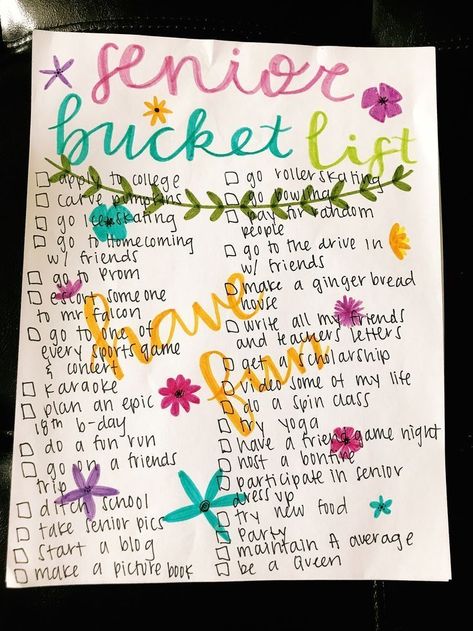 senior
bucket list
apply to college
carve pumpkins
go Ice skating
go to Homecoming
w/ friends
go to Prom
escort someone
to mr falcon
go to one of
every sports game
& concert
Karaoke
plan an epic
18th b-day
do a fun run
go on a friends
trip
ditch school
take senior pics
start a blog
make a picture book
go rollerskating
go bowling
pay for random
people
go to the drive in
w/ friends
make a ginger bread
house
write all my friends
and teachers letters
get a scholarship
video some of my life
do a spin class
try yoga
have a friend game night
host a bonfire
participate in senior
dress up
try new food
Party
maintain A average
be a Queen
have
fun